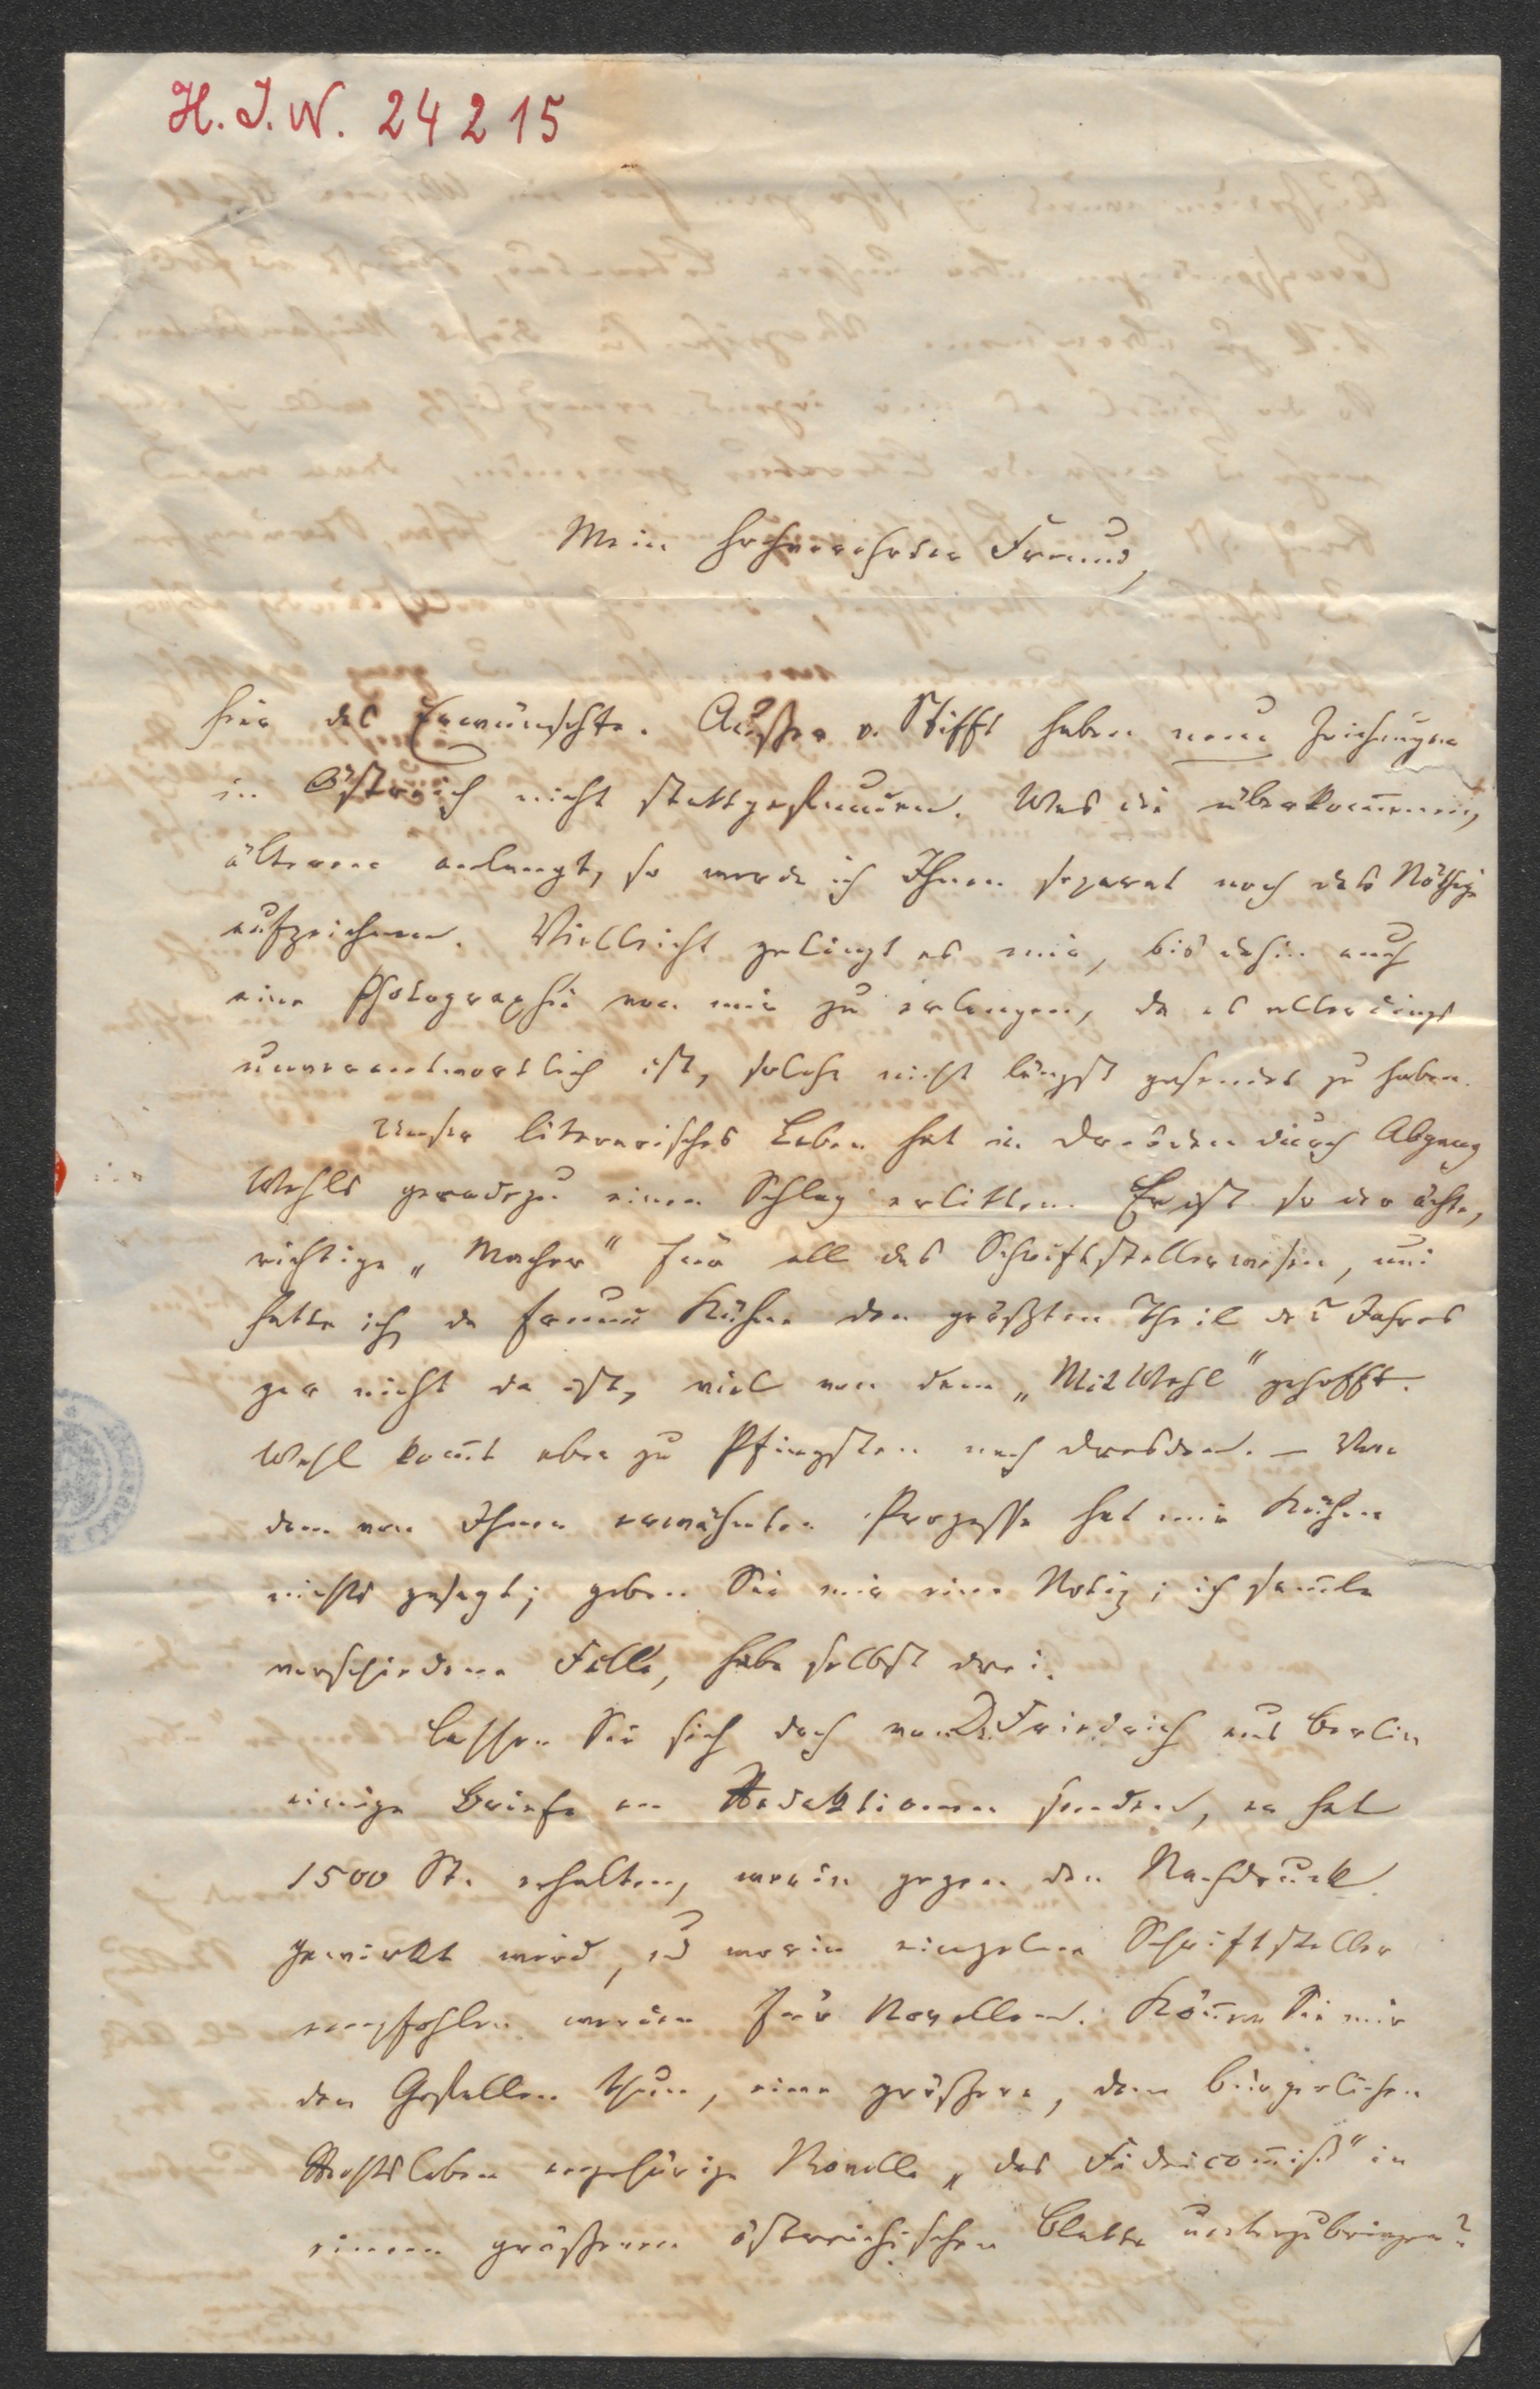 H. I. N. 24215
Mein hochverehrter Freund,
hier das Erwünschte. Außer v. Stifft haben neue Ziehungen
in Östreich nicht stattgefunden. Was die überkom̅enen,
älteren anlangt, so werde ich Ihnen separat noch das Nöthige
aufzeichnen. Vielleicht gelingt es mir, bis dahin auch
eine Photographie von mir zu erlangen, da es allerdings
unverantwortlich ist, solche nicht längst gesendet zu haben.
Unser literarisches Leben hat in Dresden durch Abgang
Wehls geradezu einen Schlag erlitten. Er ist so der ächte,
richtige „Macher“ für all das Schriftstellerwesen, und
hatte ich, da Freund Kühne den größten Theil des Jahres
gar nicht da ist, viel von dem „Mit Wehl“ gehofft.
Wehl kom̅t aber zu Pfingsten nach Dresden. – Von
dem von Ihnen erwähnten Prozesse hat mir Kühne
nichts gesagt; geben Sie mir eine Notiz; ich sam̅le
verschiedene Fälle, habe selbst drei.
Lassen Sie sich doch von Dr. Friedrich aus Berlin
einige Briefe an Redaktionen senden, er hat
1500 St. erhalten, worin gegen den Nachdruck
gewirkt wird, und worin einzelne Schriftsteller
empfohlen werden für Novellen. Kön̅en Sie mir
den Gefallen thun, eine größere, dem bürgerlichen
Rechtsleben angehörige Novelle „das Fideicom̅iß“ in
einem größeren östreichischen Blatte unterzubringen?